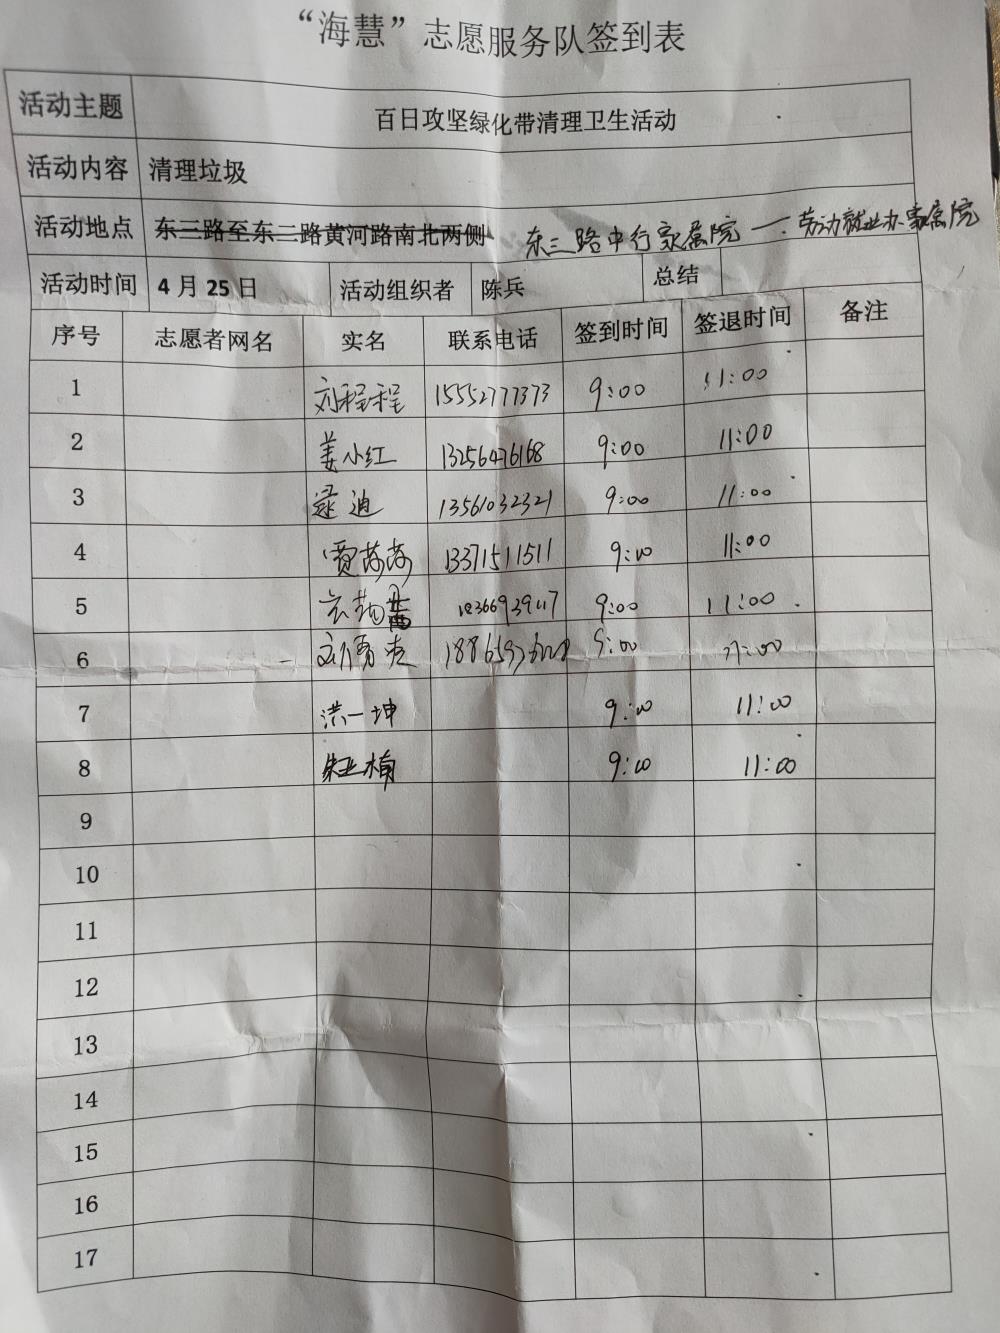 “海慧”志愿服务队签到表
活动主题 百日攻坚绿化带清理卫生活动
活动内容 清理垃圾
活动地点 东三路至东二路黄河路南北两侧 东三路中行家属院一劳动就业办家属院
活动时间 4月25日 活动组织者 陈兵 总结
序号 志愿者网名 实名 联系电话 签到时间 签退时间 备注
1 刘程程 15552777373 9:00 11:00
2 姜小红 13256476168 9:00 11:00
3 逯迪 13561032321 9:00 11:00
4 贾芳芳 13371511511 9:00 11:00
5 9:00 11:00
6 9:00 11:00
7 洪一坤 9:00 11:00
8 朱业楠 9:00 11:00
9
10
11
12
13
14
15
16
17